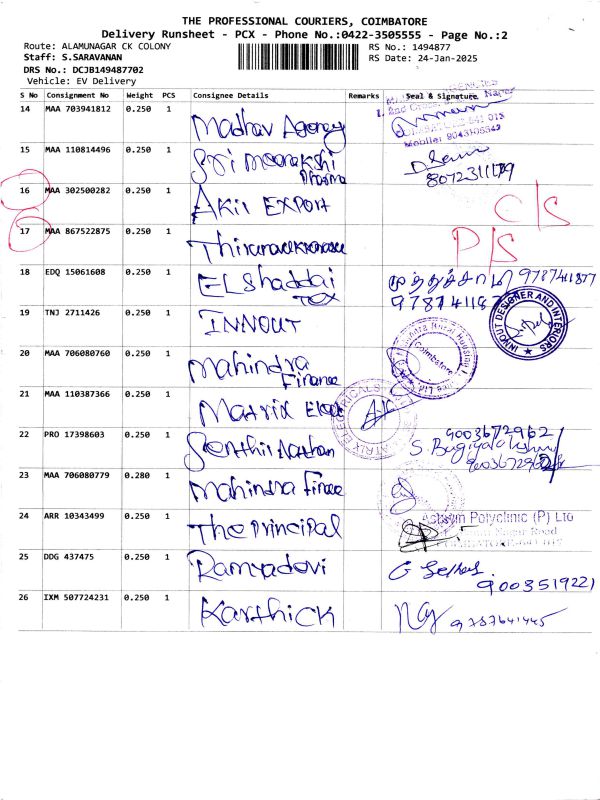 THE PROFESSIONAL COURIERS, COIMBATORE
Delivery Runsheet - PCX - Phone No.:0422-3505555 - Page No.:2
Route: ALAMUNAGAR CK COLONY RS No.: 1494877
Staff: S.SARAVANAN RS Date: 24-Jan-2025
DRS No.: DCJB149487702
Vehicle: EV Delivery
S No Consignment No Weight PCS Consignee Details Remarks Seal & Signature
14 MAA 703941812 0.250 1 Madhav Agency
Mobile: 9043105542
15 MAA 110814496 0.250 1 Sri meenakshi Pharma
8072311179
16 MAA 302500282 0.250 1 AKil EXPORT C/S
17 MAA 867522875 0.250 1 P/S
18 EDQ 15061608 0.250 1 ELShaddai TEX முத்துச்சாமி 9787411877
19 TNJ 2711426 0.250 1 INNOUT INNOUT DESIGNER AND INTERIORS
20 MAA 706080760 0.250 1 Mahindra Finance Coimbatore
21 MAA 110387366 0.250 1 Matrix MATRIX ELECTRICALS
22 PRO 17398603 0.250 1 Senthil Nathan 9003672962
23 MAA 706080779 0.280 1 Mahindra
24 ARR 10343499 0.250 1 The principal Polyclinic (P) Ltd
25 DDG 437475 0.250 1 Ramyadevi 9003519221
26 IXM 507724231 0.250 1 Karthick 9787641445